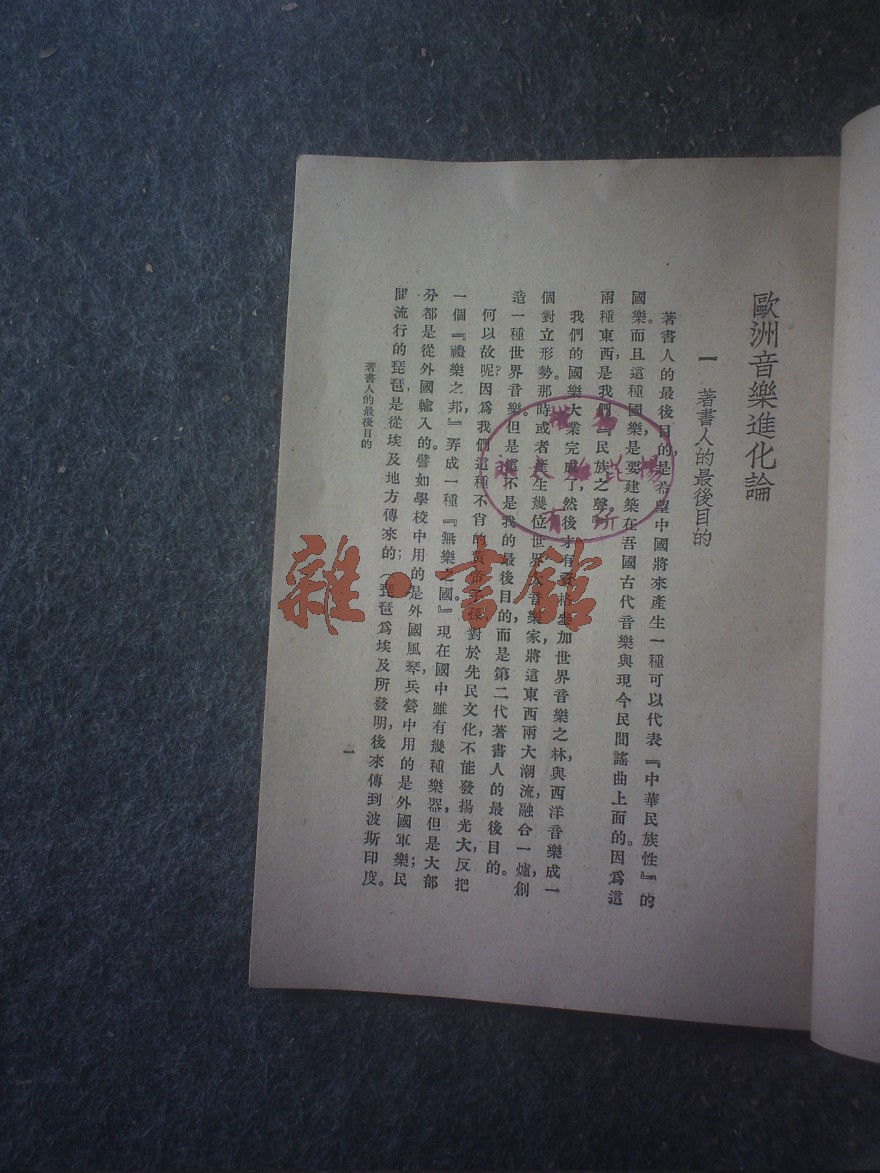 歐洲音樂進化論
一 著書人的最後目的
著書人的最後目的,是希望中國將來產生一種可以代表『中華民族性』的
國樂。而且這種國樂,是要建築在吾國古代音樂與現今民間謠曲上面的。因爲這
兩種東西,是我們『民族之聲』。
我們的國樂大業完成了,然後才有資格參加世界音樂之林,與西洋音樂成一
個對立形勢。那時或者產生幾位世界大音樂家,將這東西兩大潮流,融合一爐,創
造一種世界音樂。但是這不是我的最後目的,而是第二代著書人的最後目的。
何以故呢?因爲我們這種不肖的黃帝子孫,對於先民文化,不能發揚光大,反把
一個『禮樂之邦』弄成一種『無樂之國』。現在國中雖有幾種樂器,但是大部
分都是從外國輸入的。譬如學校中用的是外國風琴;兵營中用的是外國軍樂;民
間流行的琵琶,是從埃及地方傳來的;(琵琶爲埃及所發明,後來傳到波斯印度。
著書人的最後目的
一
雜·書館